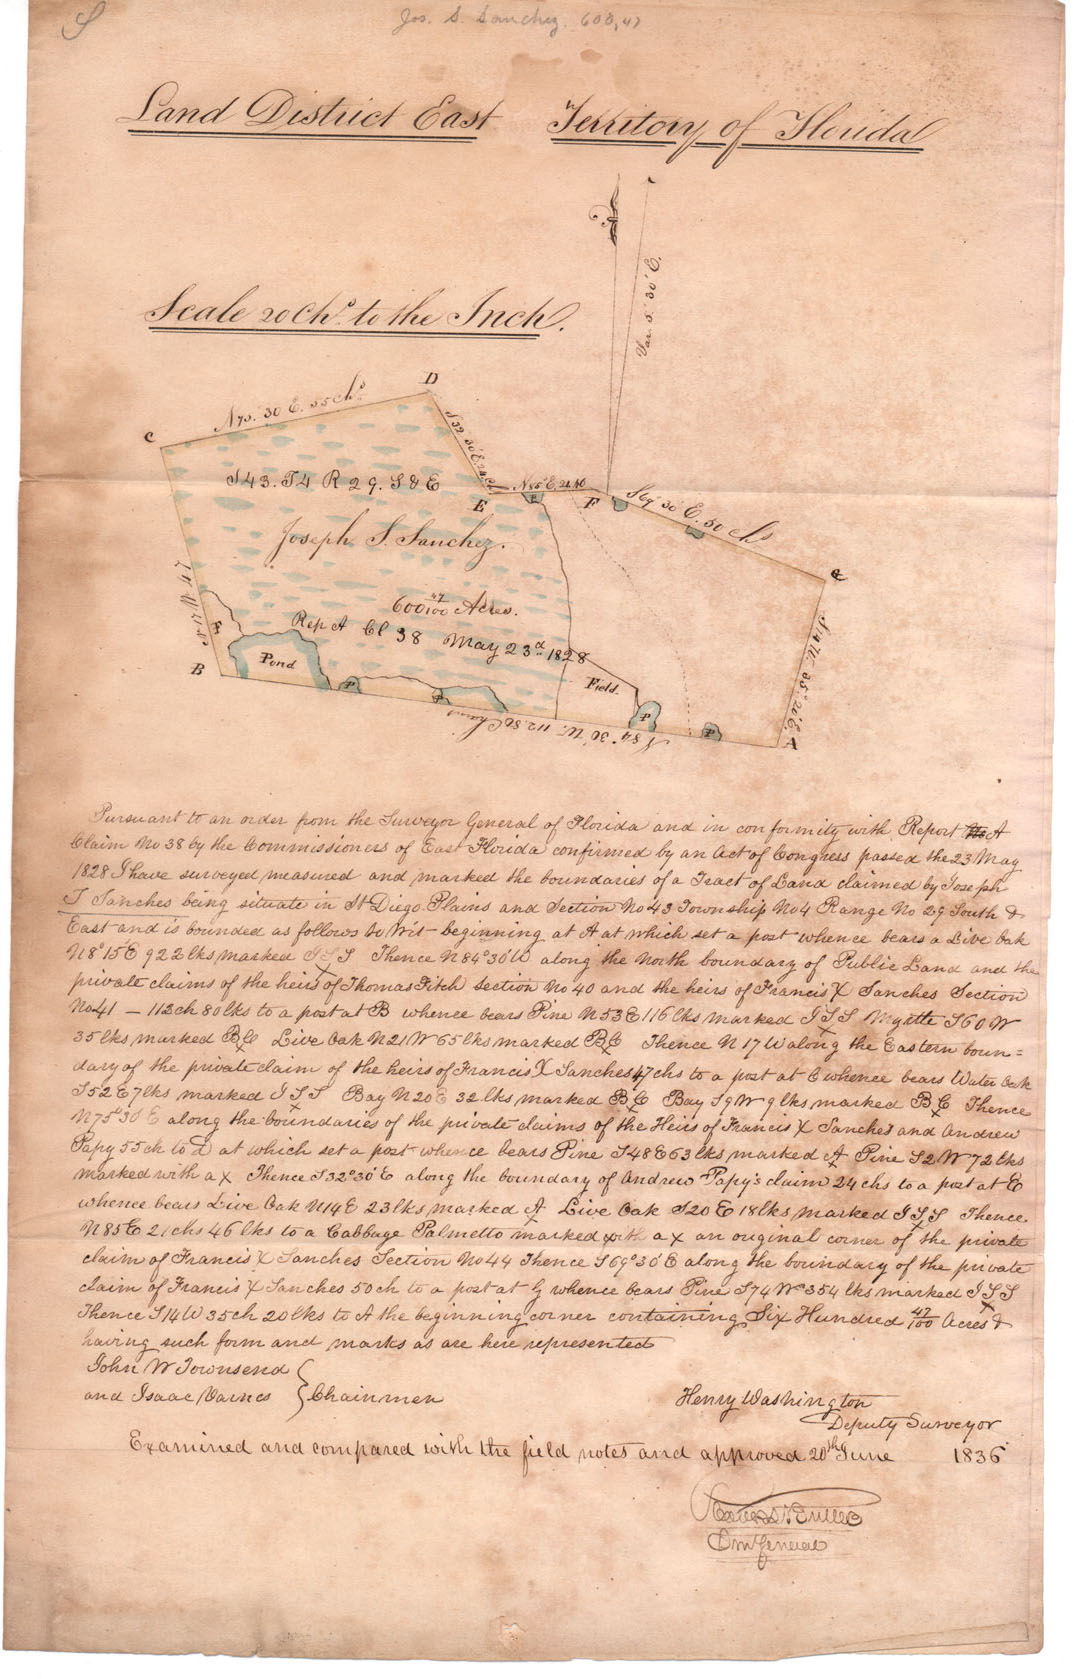 S
Jos. S. Sanchez. 600,47
Land District East Territory of Florida
Scale 20 Chs. to the Inch.
Var. 5° 30' E.
D
N 75° 30' E. 55 Chs
C
S 32° 30' E. 24 Ch
S 43. T 4 R 29. S & E
E
N 85° E. 21.46
F
S 69° 30' E. 50 chs
P
Joseph S. Sanchez.
G
600 47/100 Acres.
Rep A Cl 38 May 23d 1828
N 17 W 47 ch
S 14 W. 35. 20
P
B
Pond
Field.
P
P
P
P
A
N 84° 30' W. 112.80 Chains
Pursuant to an order from the Surveyor General of Florida and in conformity with Report A
Claim No 38 by the Commissioners of East Florida confirmed by an Act of Congress passed the 23 May
1828 I have surveyed measured and marked the boundaries of a Tract of Land claimed by Joseph
S Sanches being situate in St Diego Plains and Section No 43 Township No 4 Range No 29 South &
East and is bounded as follows to Wit beginning at A at which set a post whence bears a Live Oak
N 8° 15 E 922 lks marked J S S Thence N 84° 30' W along the North boundary of Public Land and the
private claims of the heirs of Thomas Fitch Section No 40 and the heirs of Francis X Sanches Section
No 41 — 112 ch 80 lks to a post at B whence bears Pine N 53 E 116 lks marked J S S Myrtle S 60 W
35 lks marked B C Live Oak N 21 W 65 lks marked B C Thence N 17 W along the Eastern boun=
dary of the private claim of the heirs of Francis X Sanches 47 chs to a post at C whence bears Water Oak
S 52 E 7 lks marked J S S Bay N 20 E 32 lks marked B C Bay S 9 W 9 lks marked B C Thence
N 75° 30 E along the boundaries of the private claims of the Heirs of Francis X Sanches and Andrew
Papy 55 ch to D at which set a post whence bears Pine S 48 E 63 lks marked A Pine S 2 W 72 lks
marked with a x Thence S 32° 30' E along the boundary of Andrew Papy's claim 24 chs to a post at E
whence bears Live Oak N 14 E 23 lks marked A Live Oak S 20 E 18 lks marked J S S Thence
N 85 E 21 chs 46 lks to a Cabbage Palmetto marked with a x an original corner of the private
claim of Francis X Sanches Section No 44 Thence S 69° 30' E along the boundary of the private
claim of Francis X Sanches 50 ch to a post at G whence bears Pine S 74 W 354 lks marked J S S
Thence S 14 W 35 ch 20 lks to A the beginning corner containing Six Hundred 47/100 Acres &
having such form and marks as are here represented
John W Townsend
and Isaac Varnes } Chainmen
Henry Washington
Deputy Surveyor
Examined and compared with the field notes and approved 20th June 1836